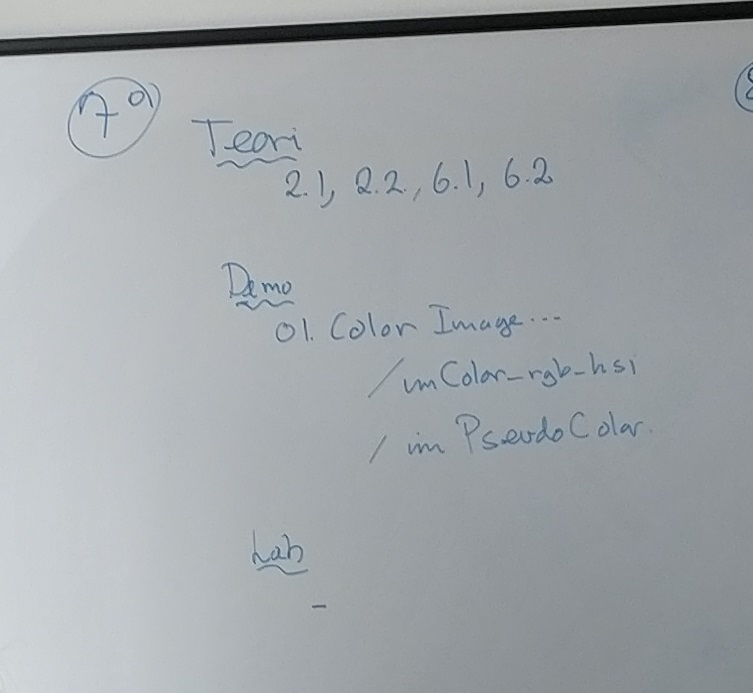 7 a)
Teori
2.1, 2.2, 6.1, 6.2
Demo
01. Color Image...
/imColor_rgb_hsi
/im PseudoColor.
Lab
-